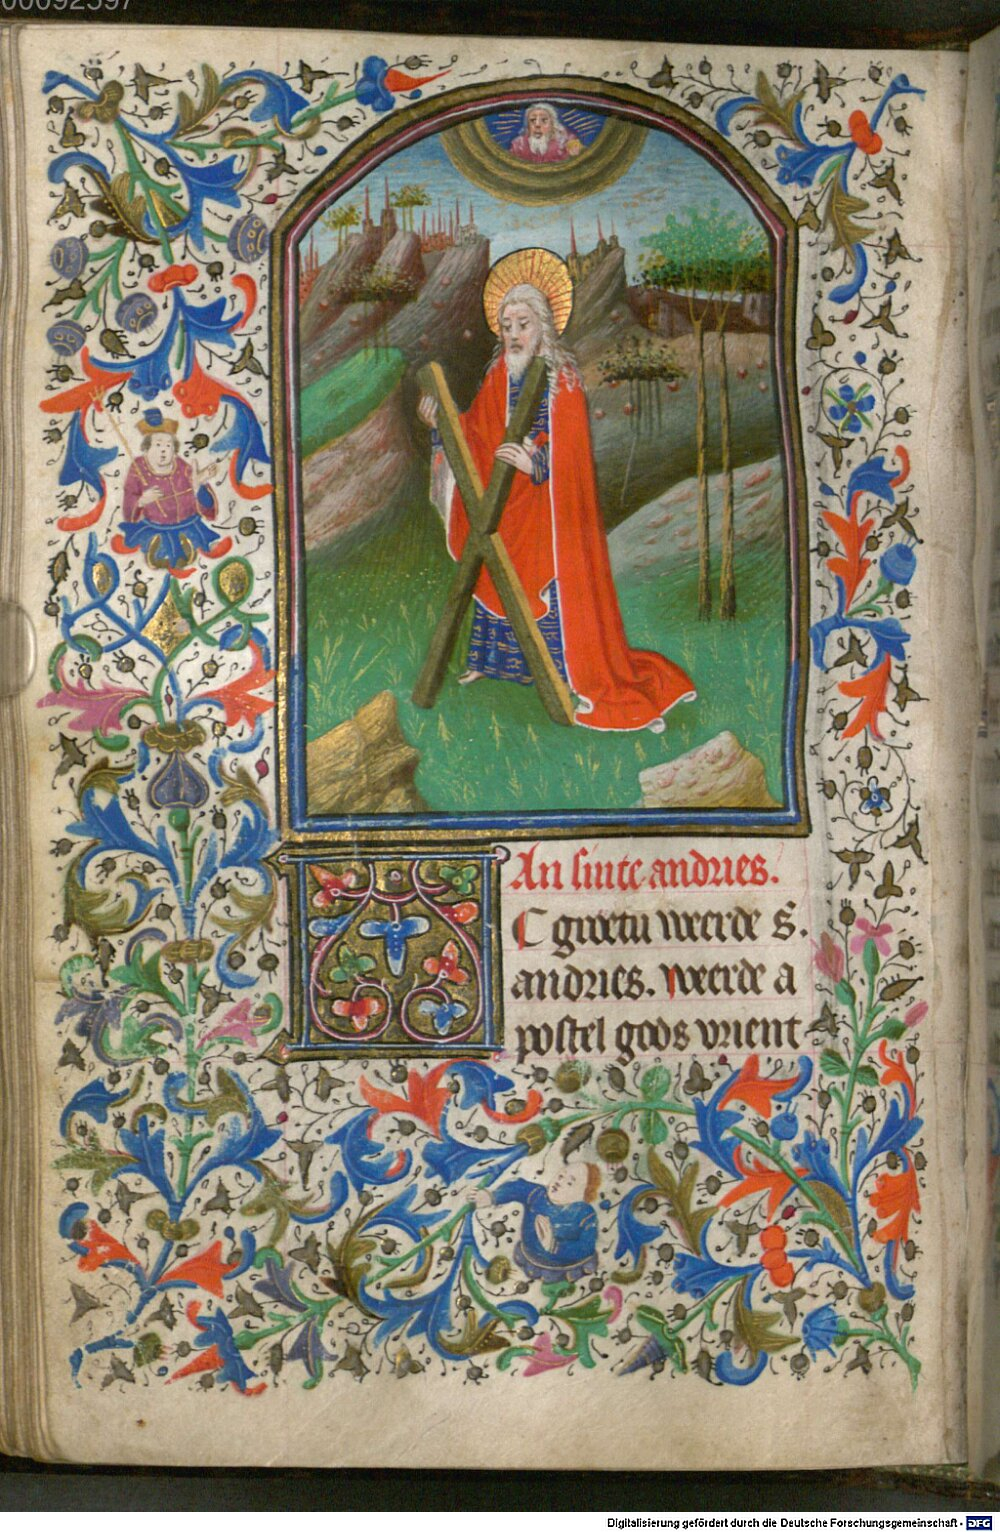 An sinte andries.
C gruetu weerde S.
andries. weerde a
postel gods vrient
Digitalisierung gefördert durch die Deutsche Forschungsgemeinschaft - DFG